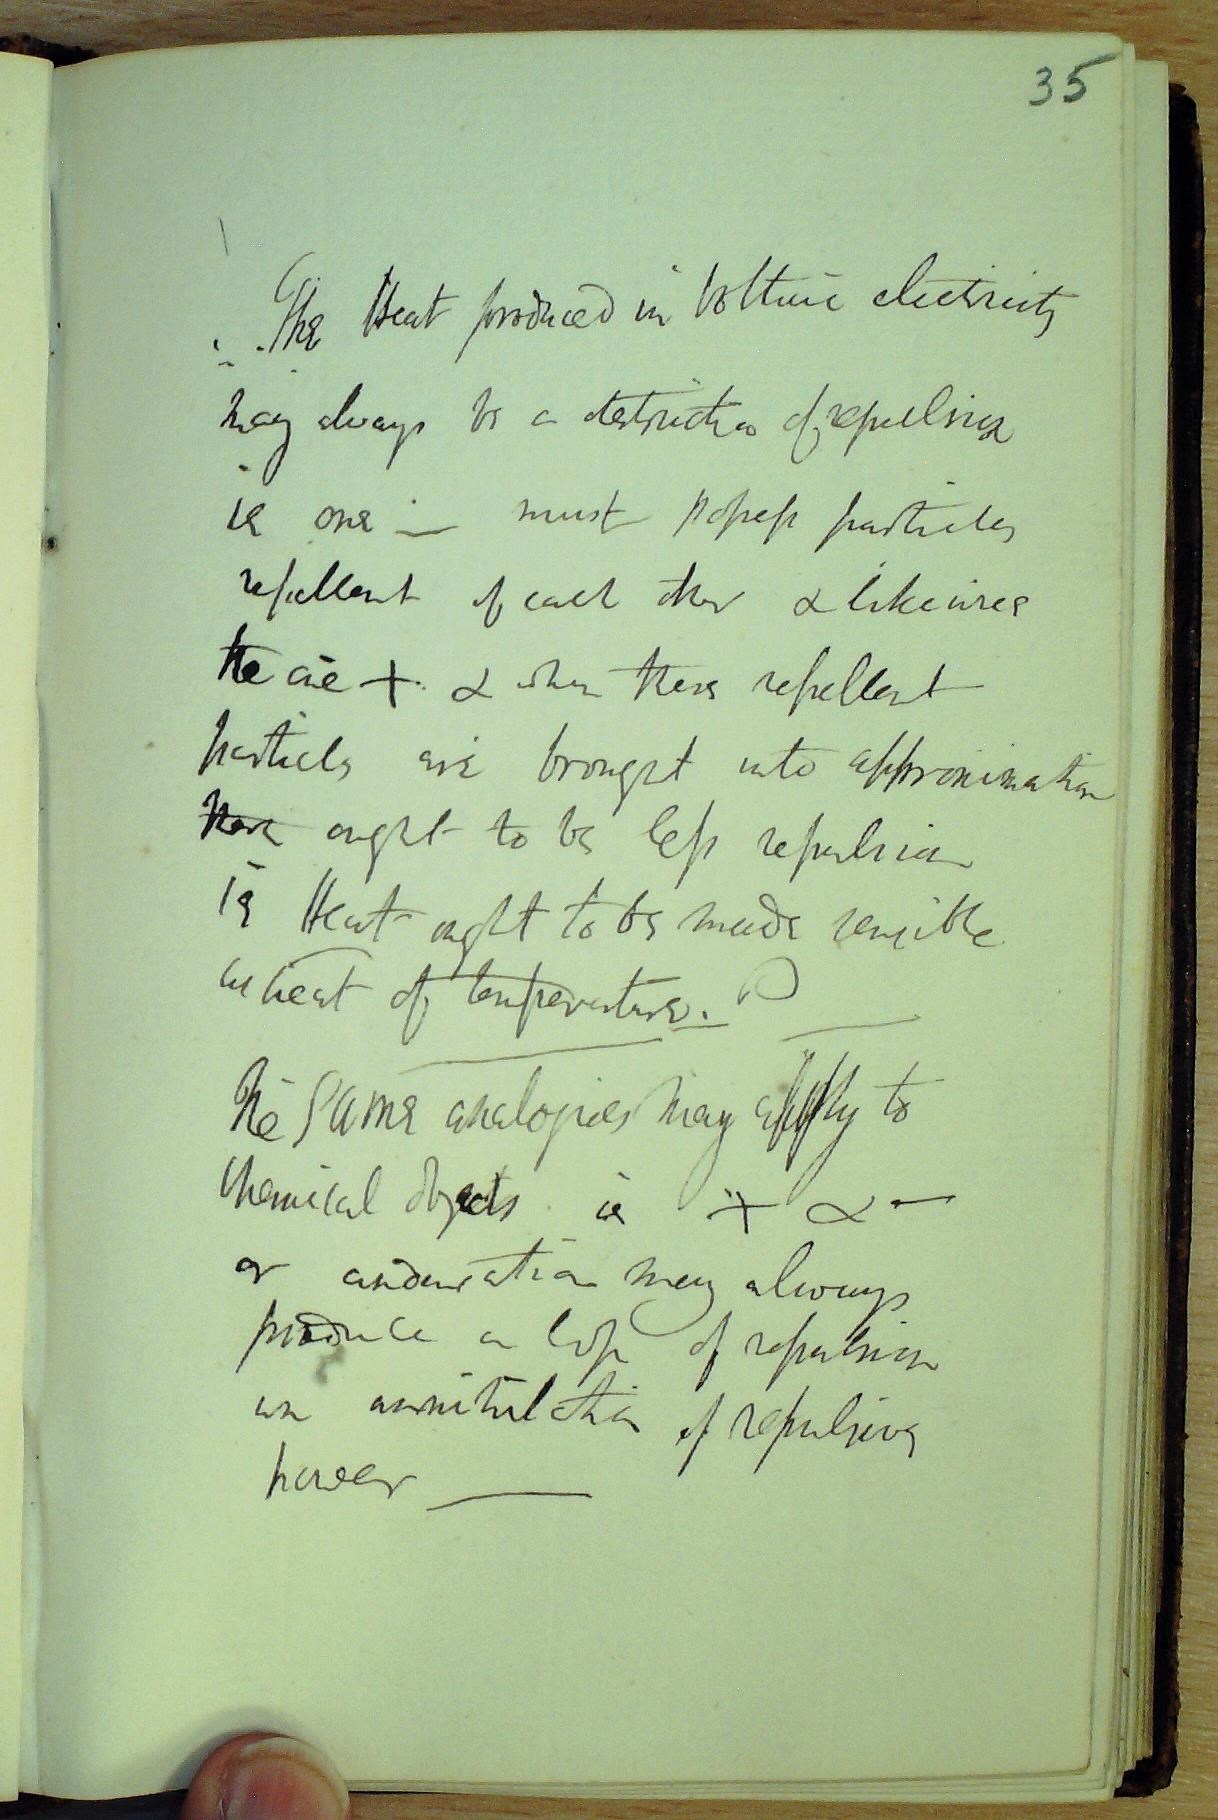 35
The Heat produced in Voltaic electricity
may always be a destruction of repulsion
ie one — must possess particles
repellent of each other & likewise
the one + & when these repellent
particles are brought into approximation
there ought to be less repulsion
ie Heat ought to be made sensible
as heat of temperature.
The same analogies may apply to
Chemical objects ie + & -
or condensation may always
produce a loss of repulsion
an annihilation of repulsive
power —